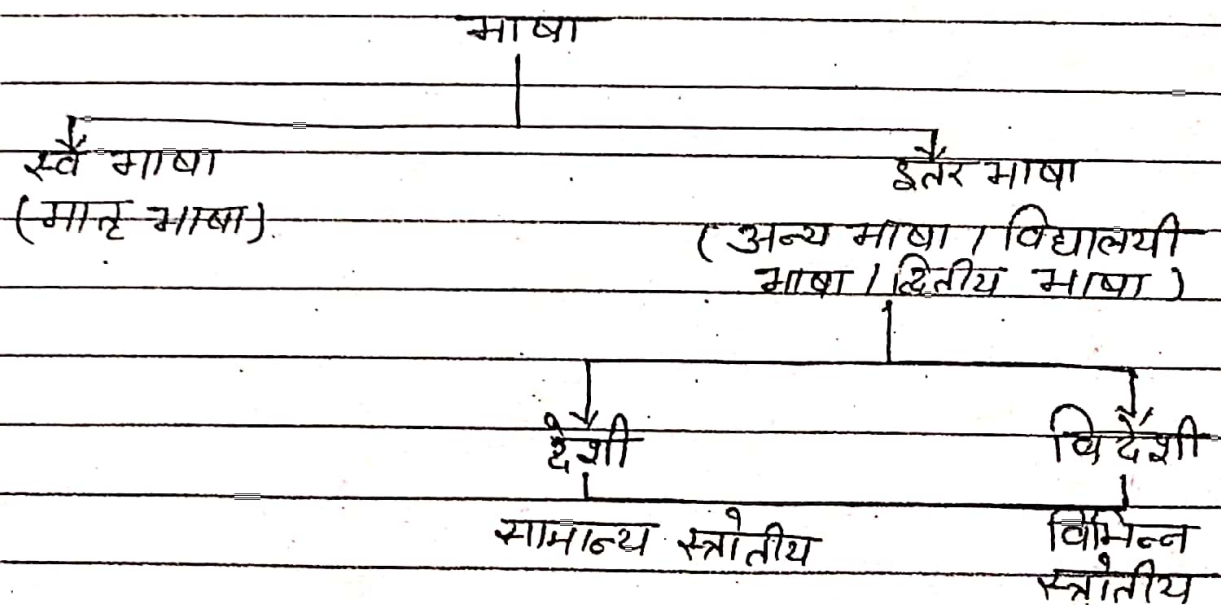 भाषा
स्वै भाषा
इतर भाषा
(मातृ भाषा)
(अन्य भाषा / विद्यालयी
भाषा / द्वितीय भाषा)
देशी
विदेशी
सामान्य स्त्रोतीय
विभिन्न
स्त्रोतीय